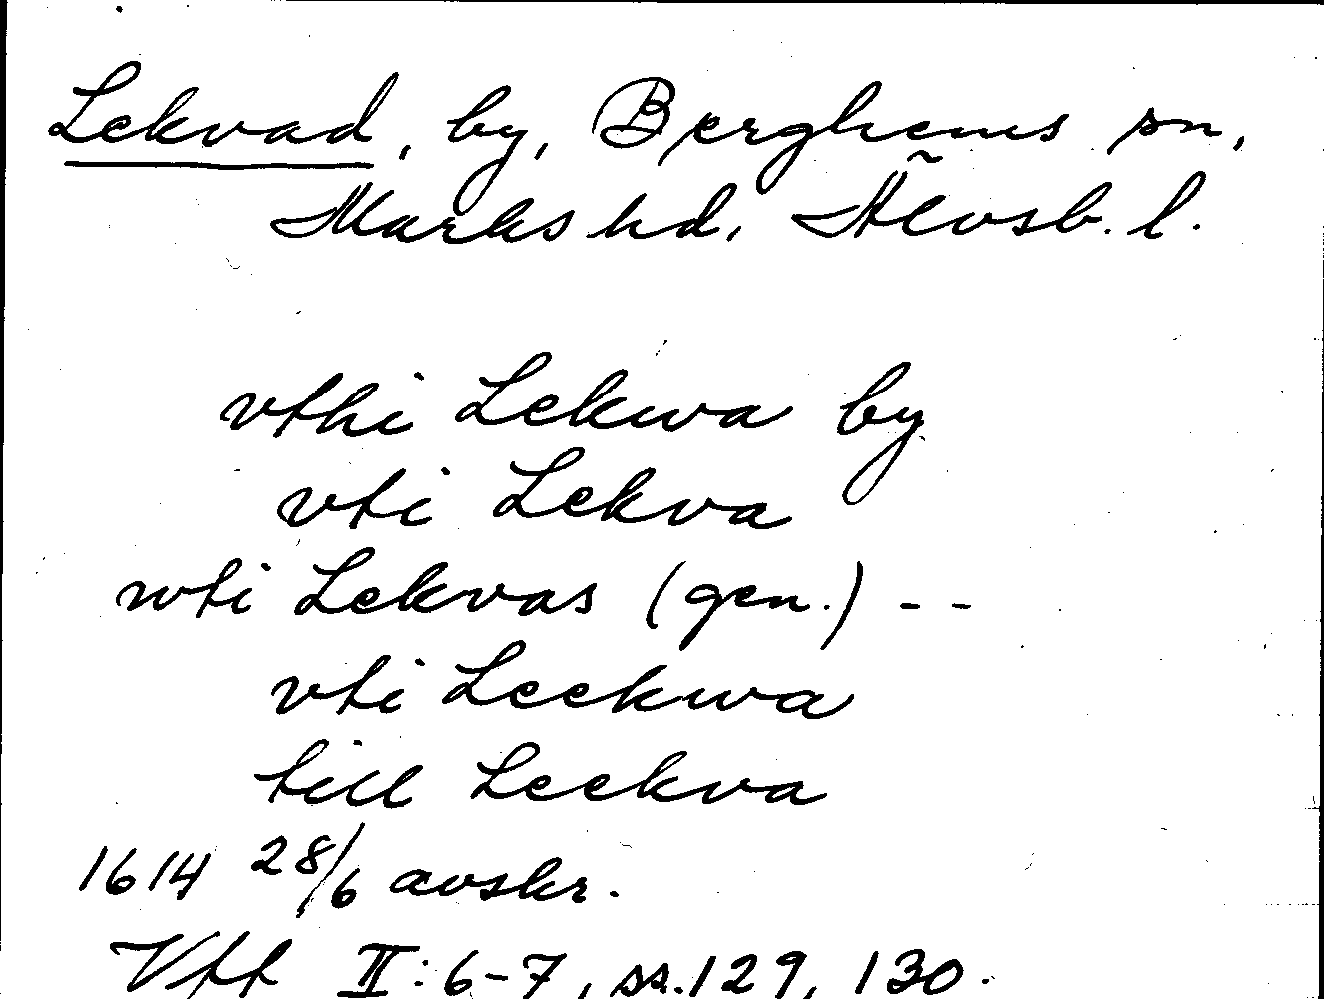 Lekvad, by, Berghems sn,
Marks hd, Älvsb. l.
vthi Lekwa by
vti Lekva
wti Lekvas (gen.) --
vti Leekwa
till Leekva
1614 28/6 avskr.
Vtt II:6-7, ss. 129, 130.